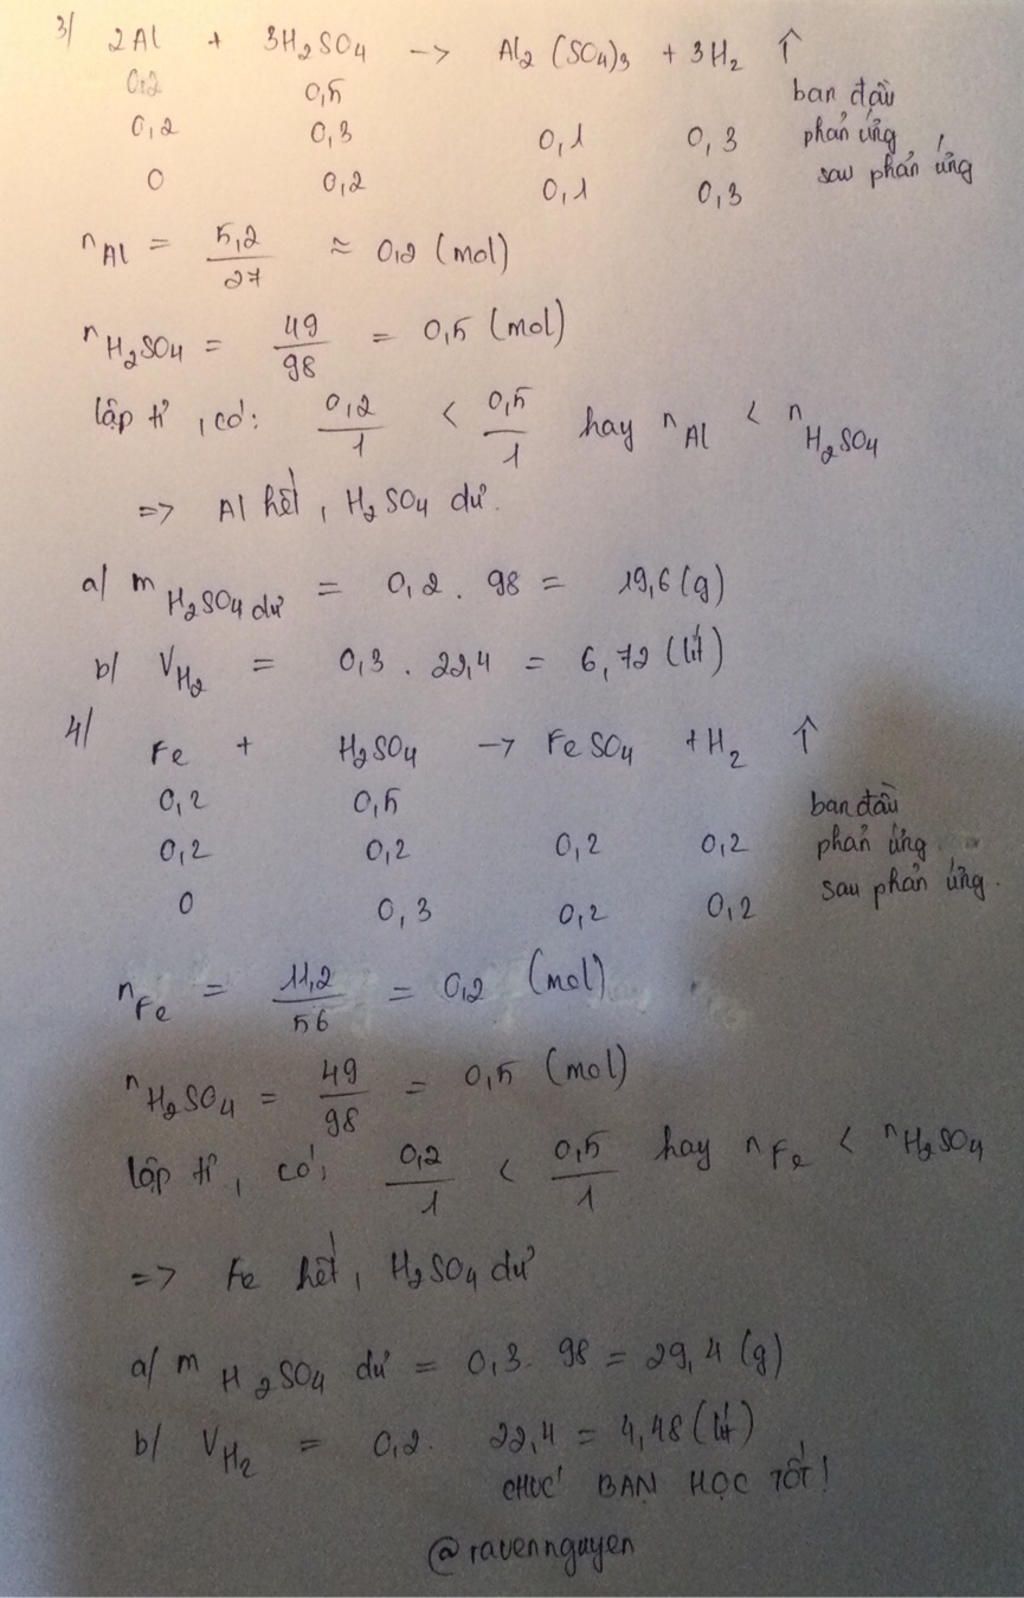 3/ 2Al + 3H2SO4 -> Al2(SO4)3 + 3H2 ↑
0.2 0,5 ban đầu
0,2 0,3 0,1 0,3 phản ứng
0 0,2 0,1 0,3 sau phản ứng
nAl = 5,2/27 ≈ 0,2 (mol)
nH2SO4 = 49/98 = 0,5 (mol)
lập tỉ, có: 0,2/1 < 0,5/1 hay nAl < nH2SO4
=> Al hết, H2SO4 dư.
a/ mH2SO4 dư = 0,2 . 98 = 19,6 (g)
b/ VH2 = 0,3 . 22,4 = 6,72 (lít)
4/ Fe + H2SO4 -> FeSO4 + H2 ↑
0,2 0,5 ban đầu
0,2 0,2 0,2 0,2 phản ứng
0 0,3 0,2 0,2 sau phản ứng.
nFe = 11,2/56 = 0,2 (mol)
nH2SO4 = 49/98 = 0,5 (mol)
lập tỉ, có: 0,2/1 < 0,5/1 hay nFe < nH2SO4
=> Fe hết, H2SO4 dư
a/ mH2SO4 dư = 0,3. 98 = 29,4 (g)
b/ VH2 = 0,2. 22,4 = 4,48 (lít)
CHÚC BẠN HỌC TỐT!
@ravennguyen